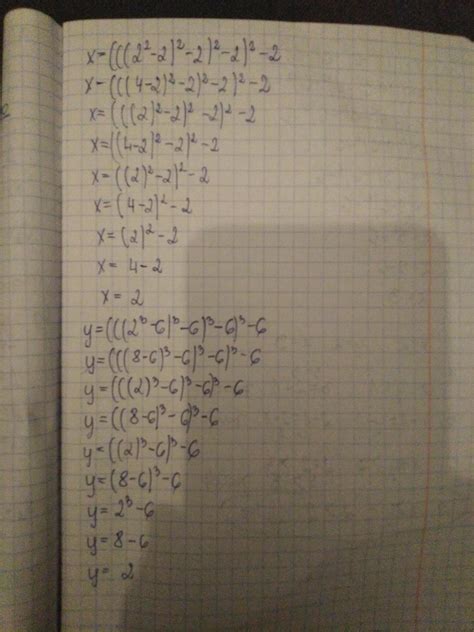 x=(((2²-2)²-2)²-2)²-2
x-(((4-2)²-2)²-2)²-2
x=(((2)²-2)²-2)²-2
x=((4-2)²-2)²-2
x=((2)²-2)²-2
x=(4-2)²-2
x=(2)²-2
x=4-2
x=2
y=(((2³-6)³-6)³-6)³-6
y=(((8-6)³-6)³-6)³-6
y=(((2)³-6)³-6)³-6
y=((8-6)³-6)³-6
y=((2)³-6)³-6
y=(8-6)³-6
y=2³-6
y=8-6
y=2